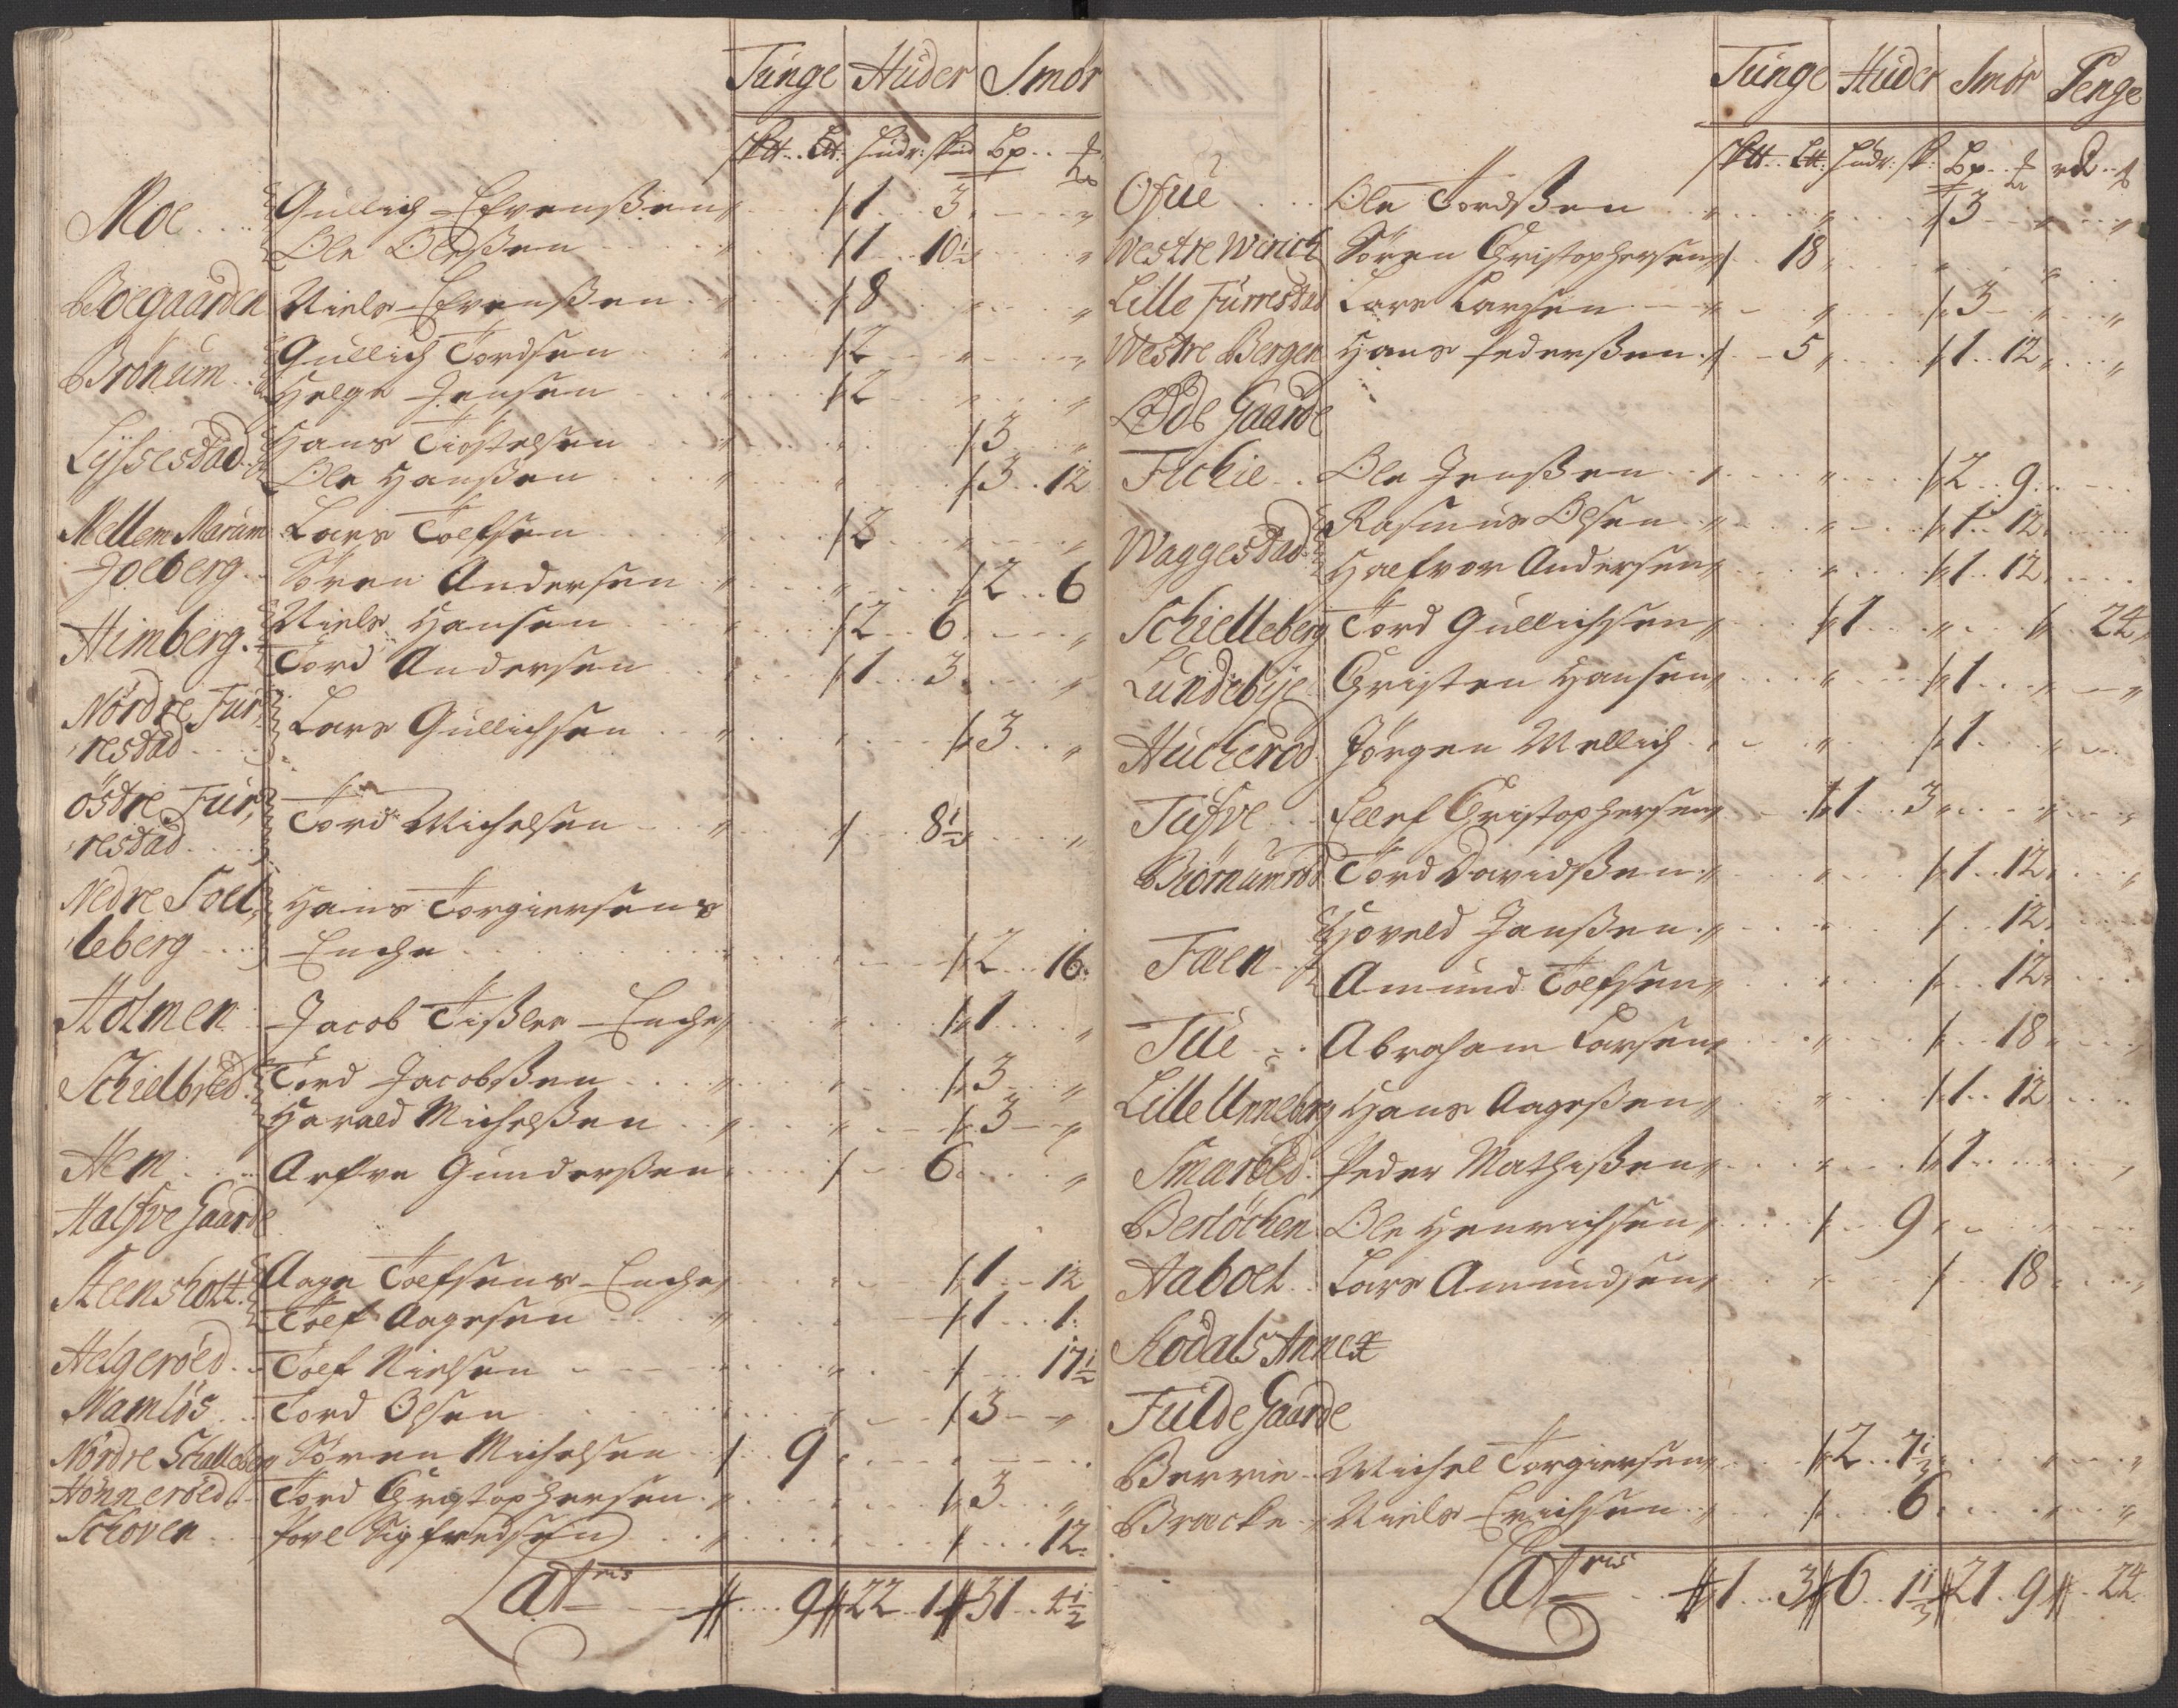 Tunge Huder Smör
Moe Gullich Efvenßen 1 3
Ole Olßen 1 10½
Boegaarden Niels Efvenßen 8
Brönum Gullich Tordsen 2
Helge Jensen 2
Lÿsestad Hans Tiostelsen 3
Ole Hanßen 3 12
Mellem Marum Lars Toefsen 3
Joeberg Sören Andersen 2 6
Himberg Niels Hansen 2 6
Tord Andersen 1 3
Nordre Fur,
restad Lars Gullichsen 3
östre Fur,
restad Tord Michelsen 8½
Nedre Soel, Hans Torgiersens
leberg Enche 2 16
Holmen Jacob Tißler Enche 1
Schielbred Tord Jacobßen 3
Harald Michelßen 3
Hem Arfve Gunderßen 6
Halfve Gaarde
Steensholt Aage Toefsens Enche 1 12
Toef Aagesen 1 1
Helgeröed Toef Nielsen 17½
Namlös Tord Olsen 3
Nordre Schalleberg Sören Michelsen 9
Hönneröed Tord Christophersen 3
Schoven Povel Sigfredsen 12
Latris 9 22 1 31 4½
Tunge Huder Smör Penge
Ofue Ole Tordßen 3
Westre Winich Sören Christophersen 18
Lille Furrestad Lars Larsen 3
Westre Bergen Hans Pederßen 5 1 12
Öde Gaarde
Fichie Ole Jenßen 2 9
Waggestad Rasmus Olsen 1 12
Halfvor Andersen 1 12
Schielleberg Tord Gullichsen 1 24
Lundebÿe Christen Hansen 1
Hucheröd Jörgen Mellich 1
Tufve Ellef Christophersen 1 3
Brönumröd Tord Davidßen 1 12
Faen Hoveld Janßen 12
Amund Toefsen 12
Tue Abraham Larsen 18
Lille Unneberg Hans Aageßen 1 12
Smaröed Peder Mathißen 1
Berlöchen Ole Henrichsen 9
Aaboet Lars Amundsen 18
Kodals Annex
Fulde Gaarde
Berrie Michel Torgiersen 2 7½
Bracke Niels Erichsen 6
Latris 1 3 6 1½ 21 9 24